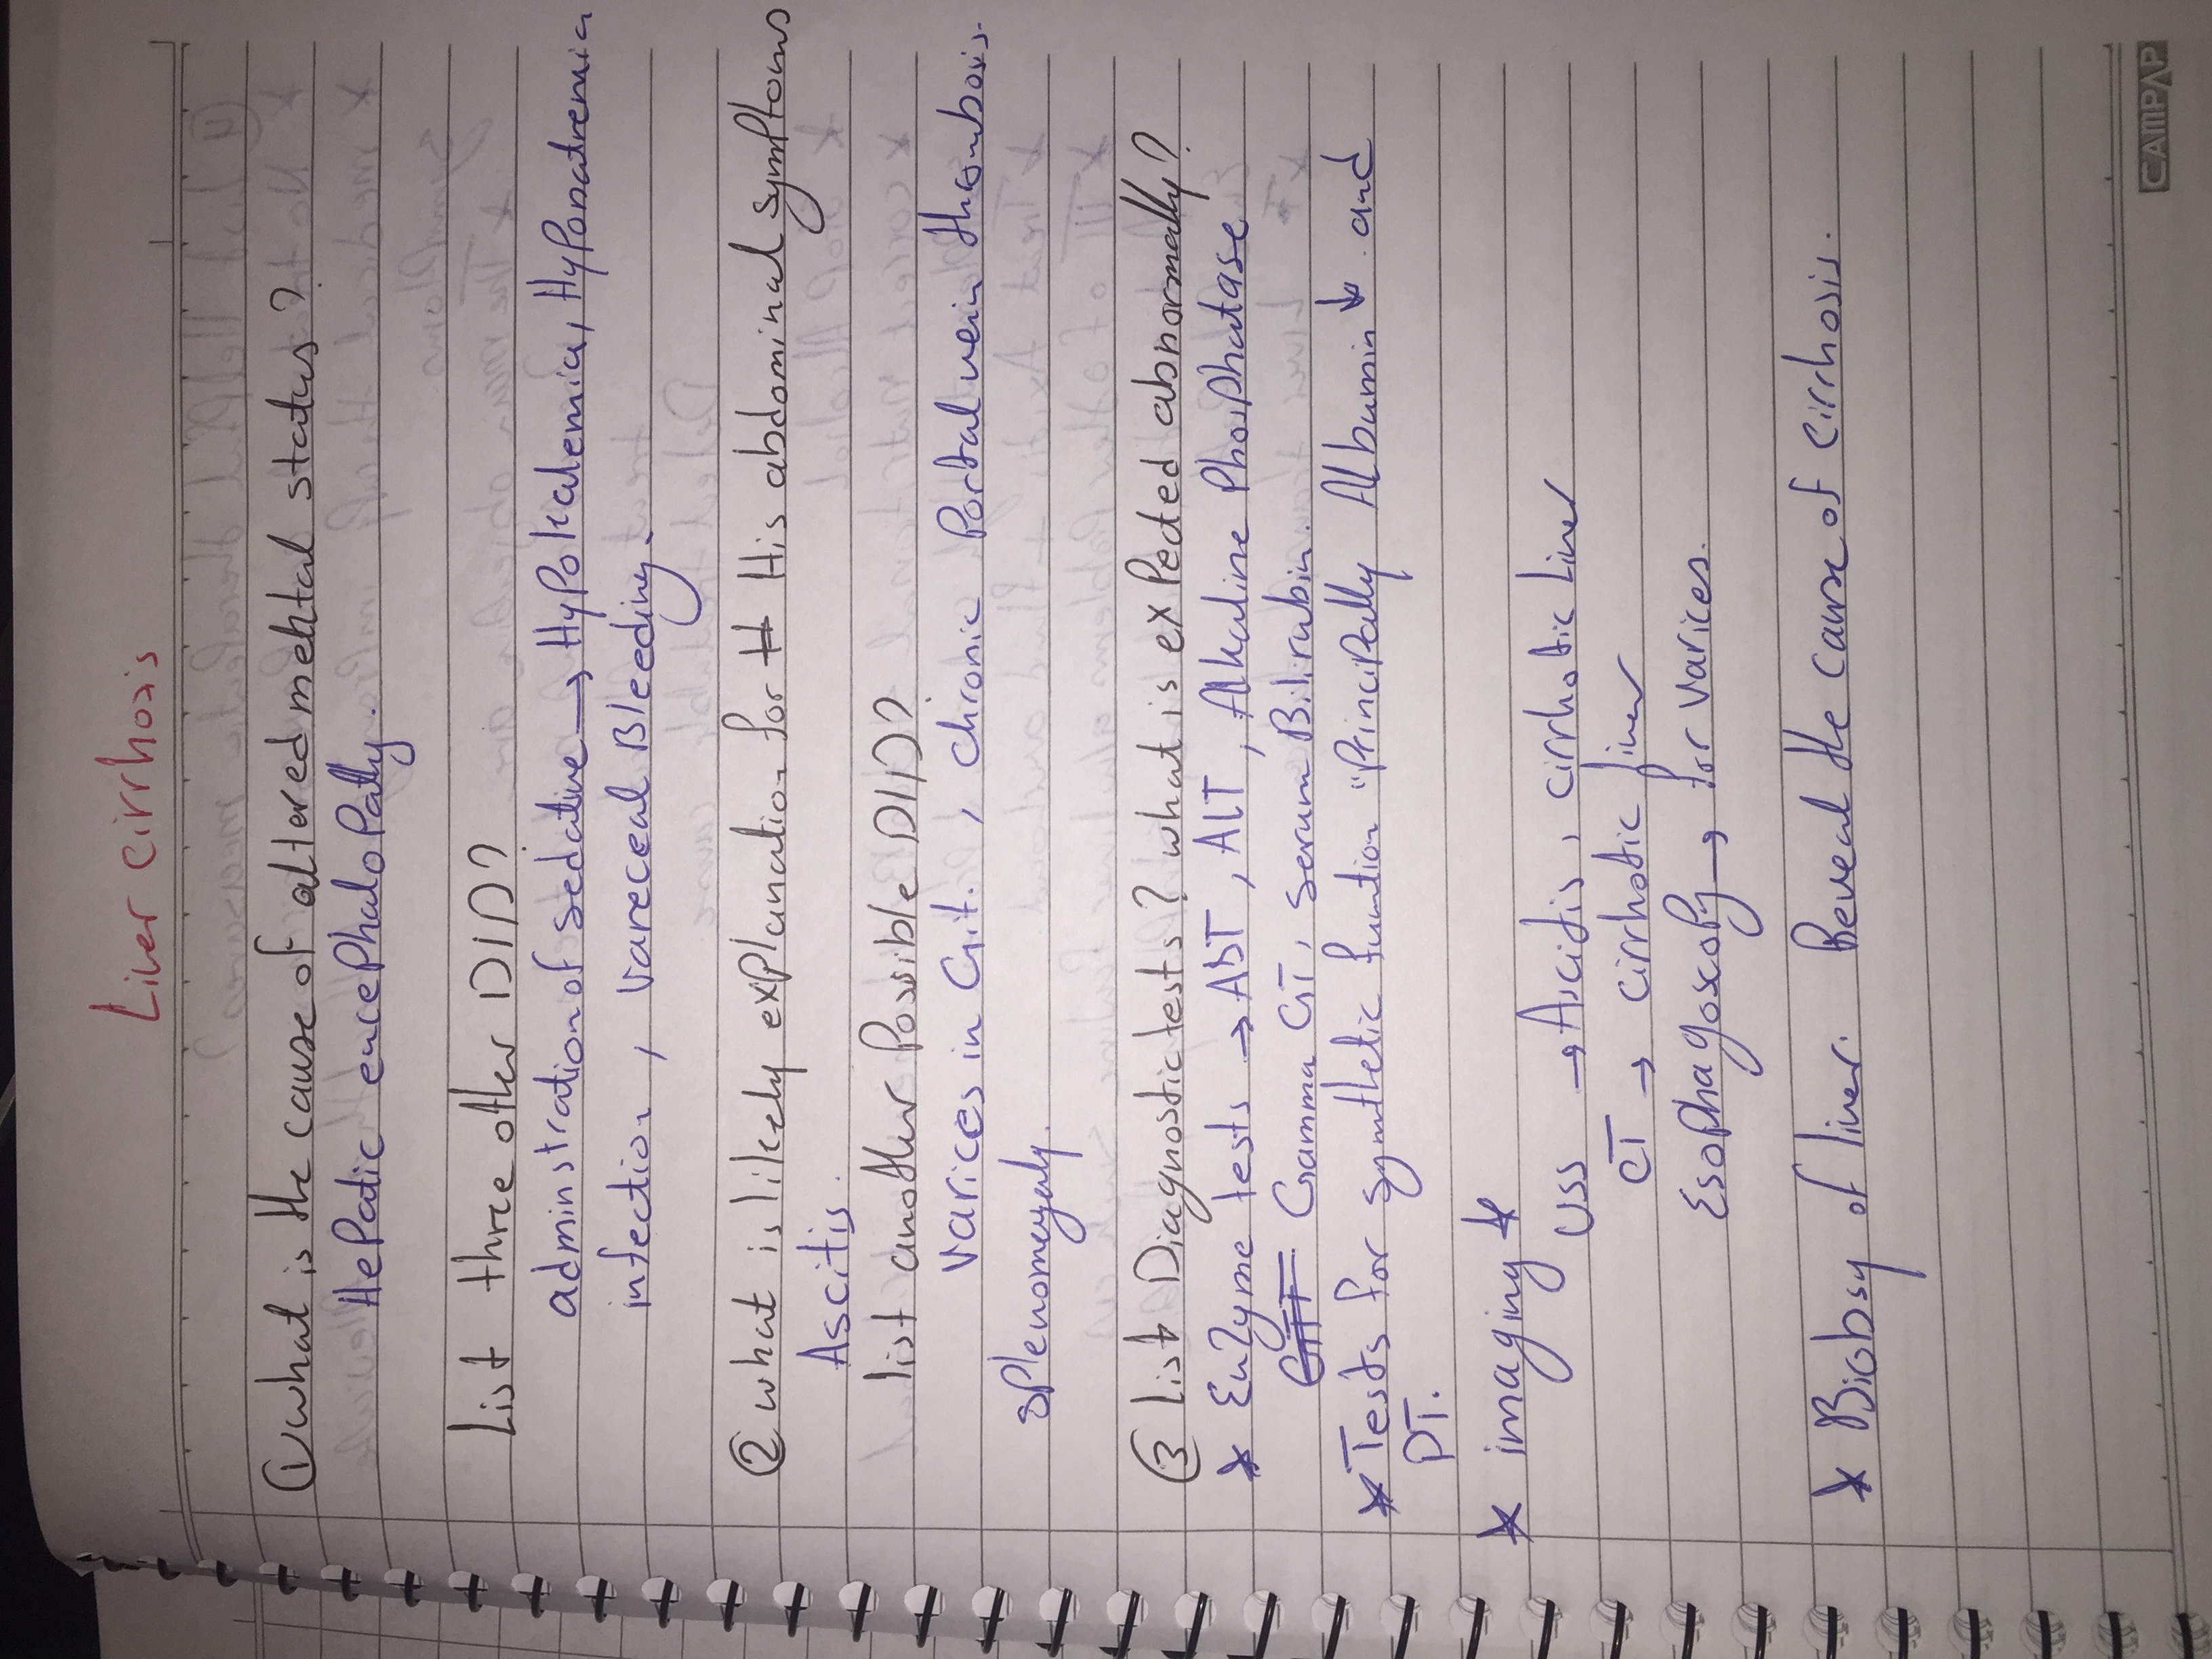 Liver cirrhosis
① what is the cause of altered mental status?
HePatic encePhaloPathy.
List three other DID?
adminstration of sedative → HyPokalemia, HyPonatremia
infection, Vareceal Bleeding.
② what is likely exPlanation for H His abdominal symptoms
Ascitis.
list another Possible DID?
Varices in GIT., chronic Portal vein thrombosis.
sPlenomegaly.
③ List Diagnostic tests? what is exPected abnormally?
* Enzyme tests → AST, ALT, Alkaline PhosPhatase
GIT Gamma GT, serum Bilirubin.
* Tests for synthetic funtion "PrinciPally Albumin ↓ and
PT.
* imaging ↓
USS → Ascitis, cirrhotic Liver
CT → cirrhotic liver
EsoPhagoscoPy → for varices.
* Biobsy of liver. Reveal the cause of cirrhosis.
CAMPAP